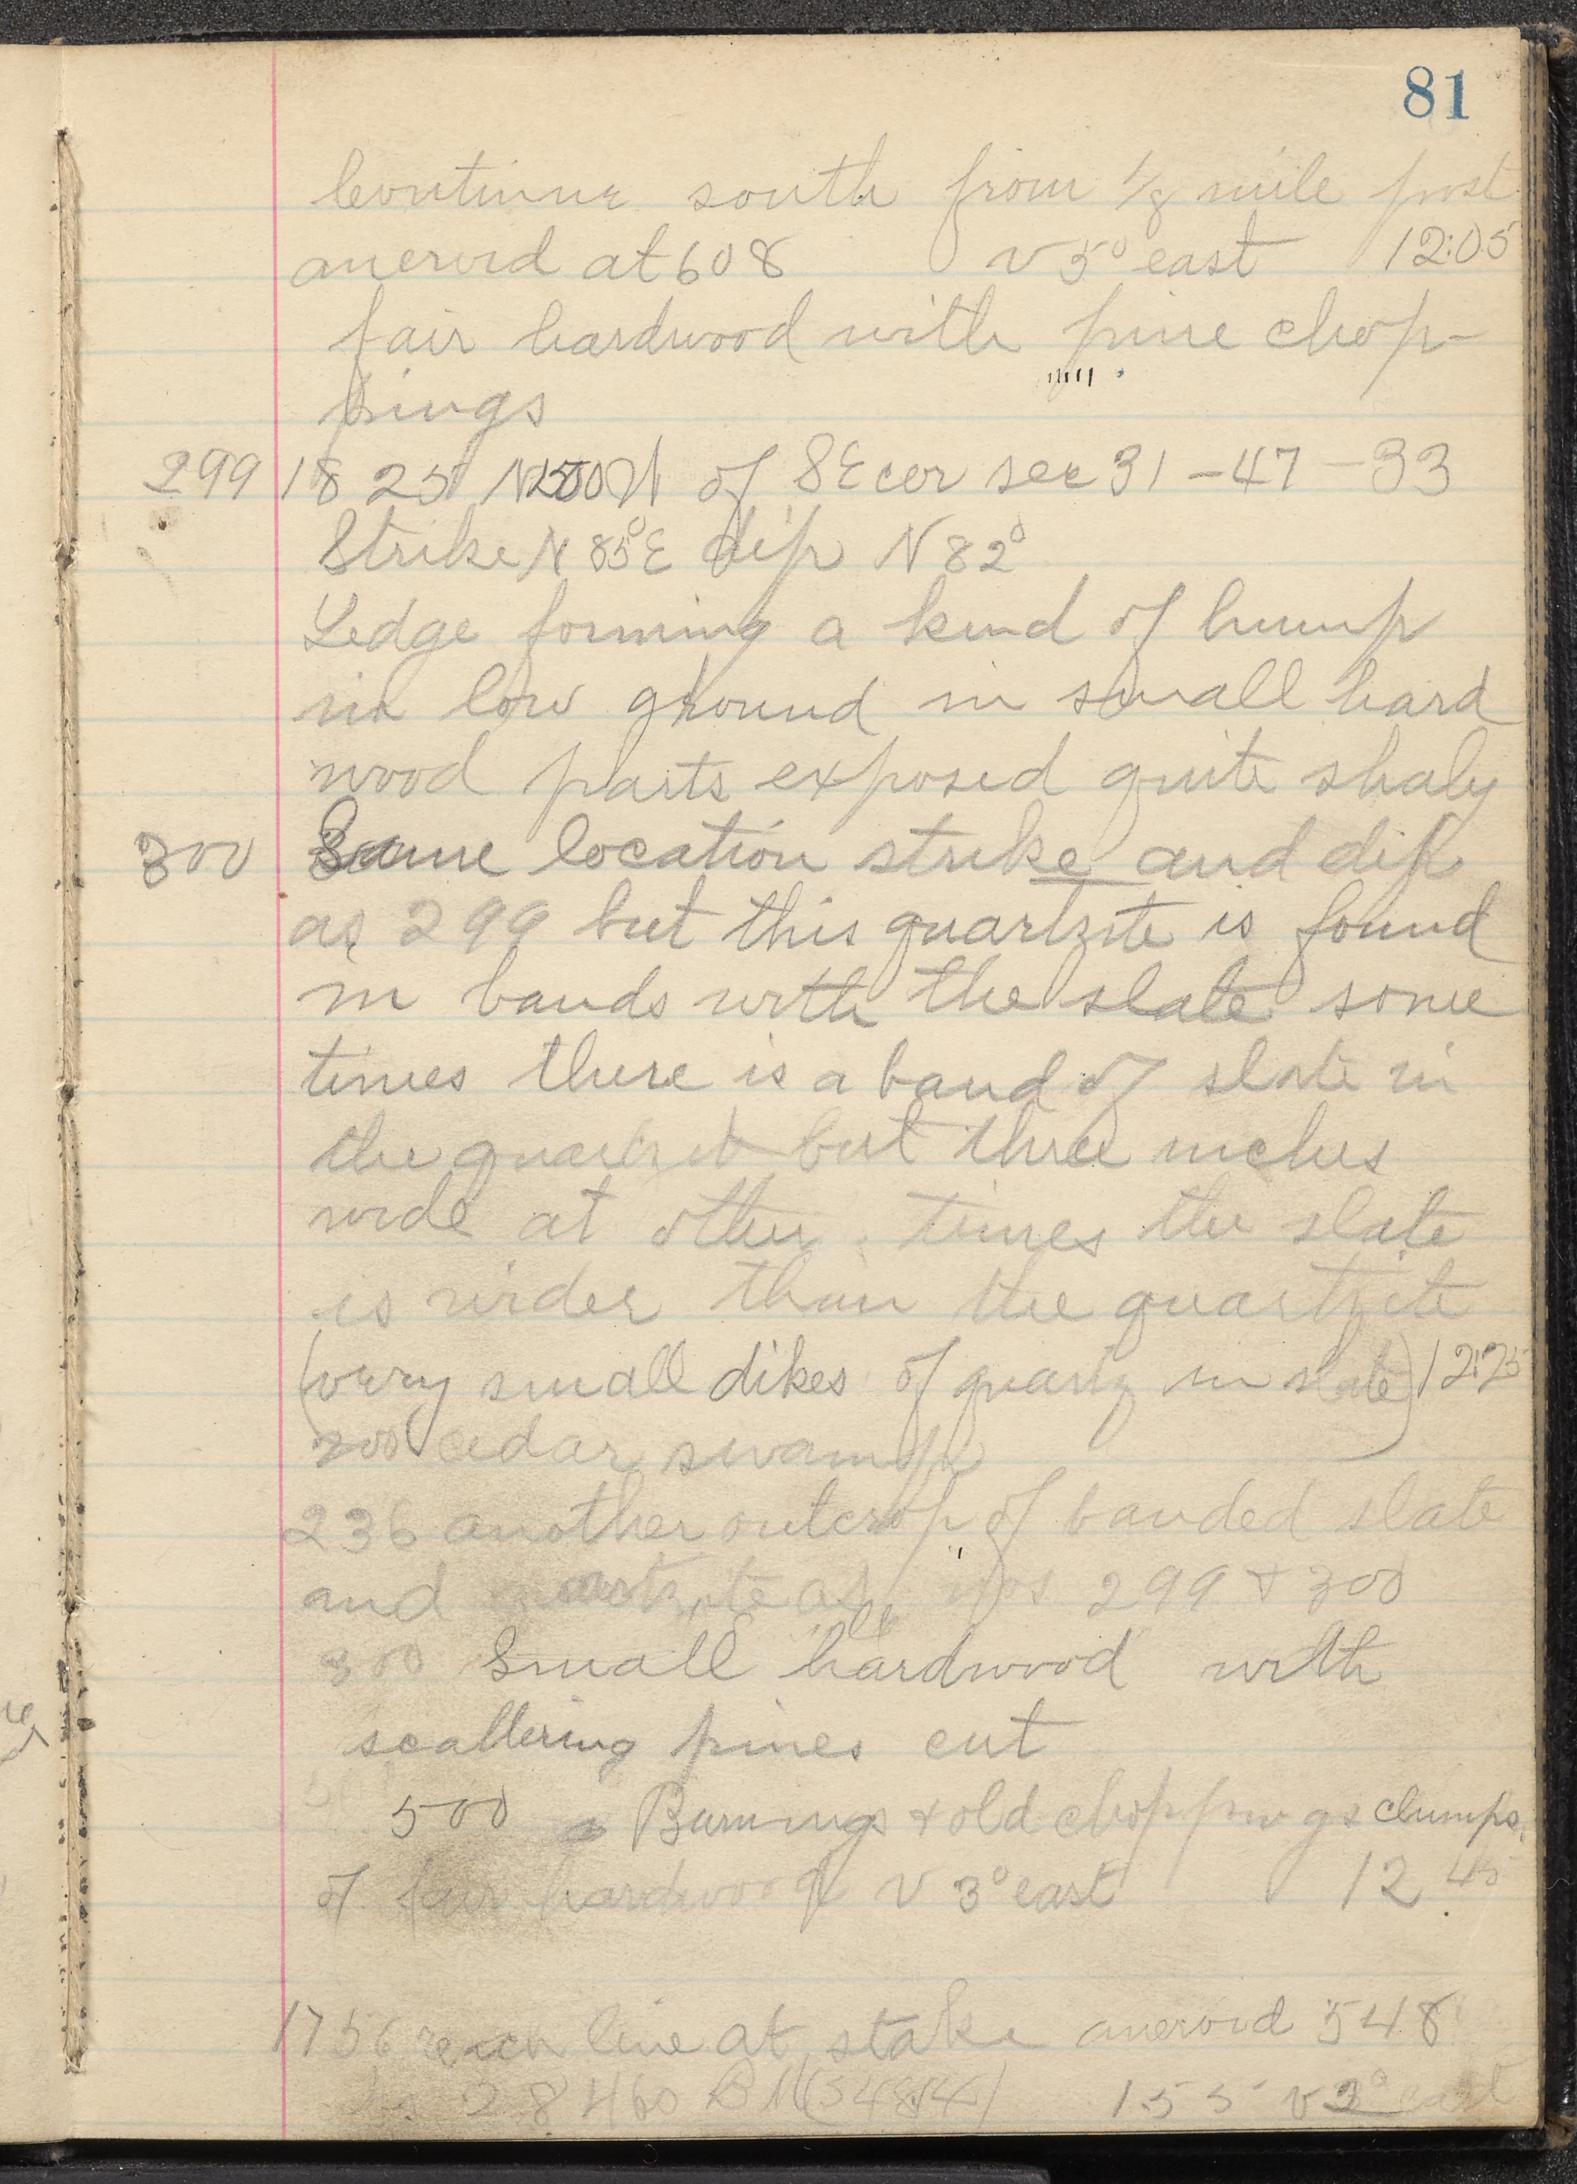 81
Continue south from 1/8 mile post
aneroid at 608 v 5° east 12:05
fair hardwood with pine chop-
pings
299 1825 N 1500 W of SE cor sec 31-47-33
Strike N 85° E dip N 82°
Ledge forming a kind of hump
in low ground in small hard
wood parts exposed quite shaly
300 Same location strike and dip
as 299 but this quartzite is found
in bands with the slate some
times there is a band of slate in
the quartzite but three inches
wide at other times the slate
is wider than the quartzite
(very small dikes of quartz in slate) 12:25
200 cedar swamp
236 another outcrop of banded slate
and quartzite as nos 299 + 300
300 Small hardwood with
scattering pines cut
500 Burnings + old choppings clumps
of fair hardwood v 3° east 12 45
1756 reach line at stake aneroid 548
28460 BM 1 55 v 2° east